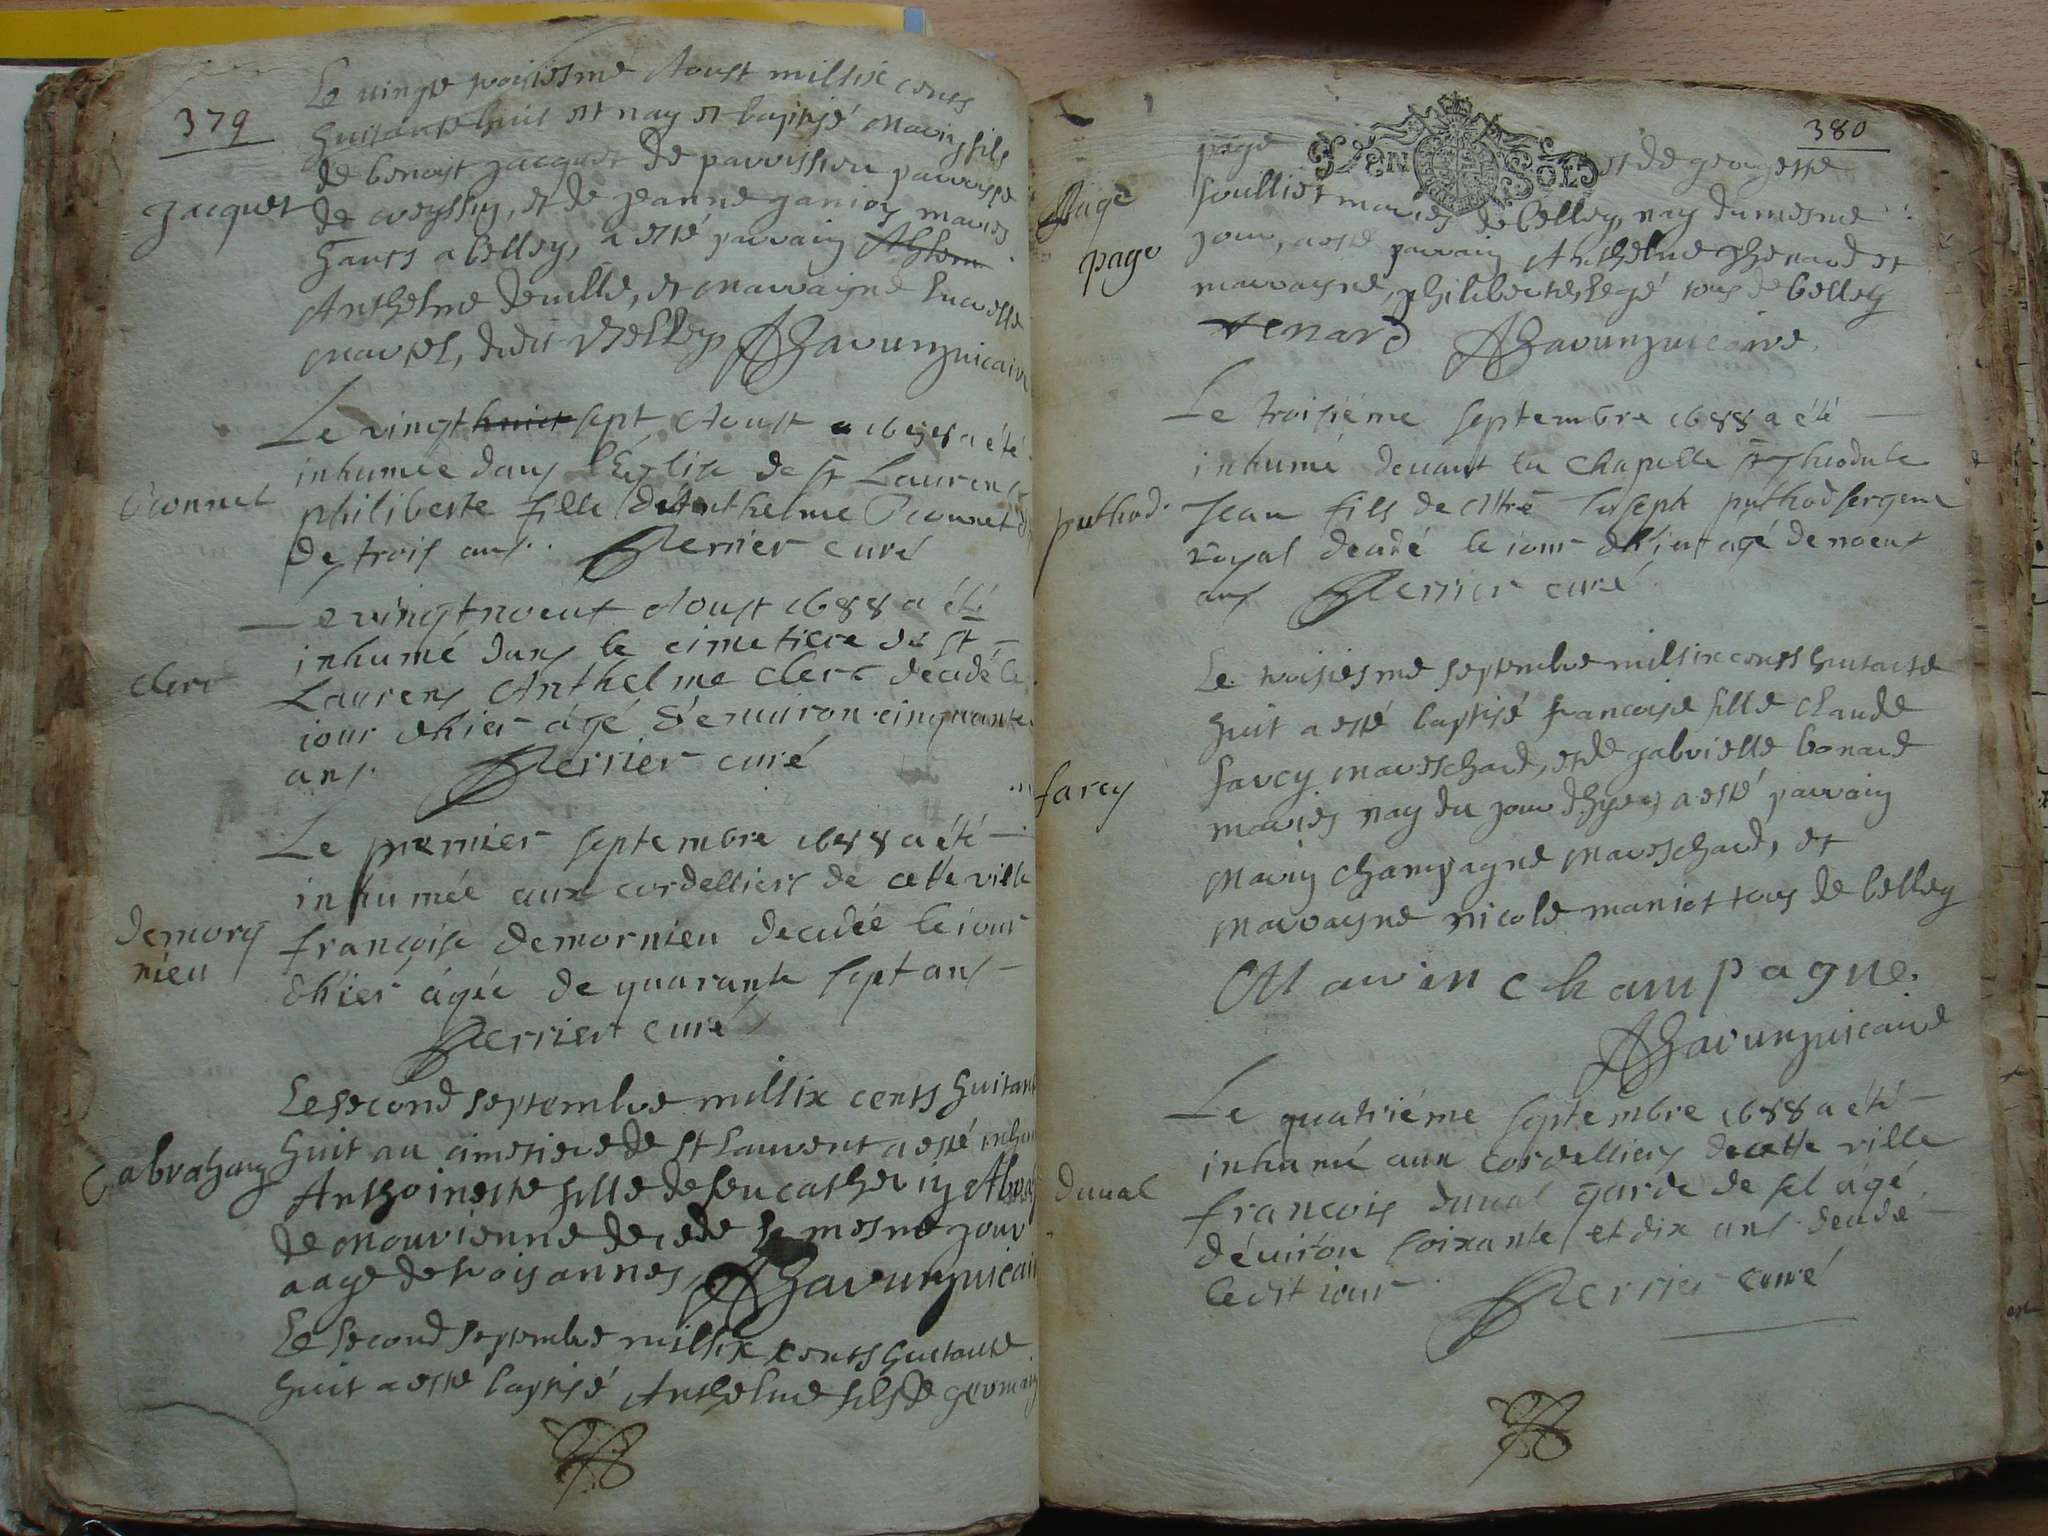 379
Le vingte troisiesme Aoust mil six cents
huitante huit est nay et baptisé Marin fils
de benoist Jacquet de parvissieu parroisse
Jacquet
de Ceyssin, et de Jeanne mariés
hants a belley, a esté parrain
Anthelme Deville, et marraigne Lucresse
Martel, dudit Belley AHarun vicaire
Le vingt huict sept Aoust a été
inhumée dans l'Église de St Laurens
philiberte fille d'Anthelme
de trois ans. Perrier curé
Le vingt noeuf Aoust 1688 a été
inhumé dans le cimetiere de St
clerc
Laurens Anthelme Clerc decedé le
iour d'hier âgé d'enuiron cinquante
ans. Perrier curé
Le premier septembre 1688 a été
inhumée aux cordelliers de cette ville
demorn
nieu
francoise demornieu decedée le iour
d'hier âgée de quarante sept ans
Perrier curé
Le second septembre mil six cents huitante
huit au cimetiere de St Laurent a esté inhu
abraham
Anthoinette fille de feu Catherin Abrah
de Mourienne decede le mesme jour
aage de trois annes, AHarun vicaire
Le second septembre mil six cents huitante
huit a esté baptisé Anthelme fils de germain
380
page GEN SOLS et de georgette
page
page
soulliet mariés de belley, nay du mesme
jour, a esté parrain Anthelme Thenard et
marrayne, philiberte legé tous de belley
tenard AHarun vicaire
Le troisiéme septembre 1688 a été
inhumé deuant la Chapelle St Theodule
puthod.
Jean fils de Mtre Joseph puthod sergent
royal decedé le iour d'hier agé de noeuf
ans Perrier curé
Le troisiesme septembre mil six cents huitante
huit a esté baptisé francoise fille Claude
farcy
farcy mareschard, et de gabrielle bonard
mariés nay du jour d'hyer, a esté parrain
Marin Champagne mareschard, et
marrayne nicole maniot tous de belley
Marin Champagne.
AHarun vicaire
Le quatriéme septembre 1688 a été
inhumé aux Cordelliers de cette ville
duual
francois duual garde de sel âgé
d'éuiron soixante et dix ans decedé
ledit iour Perrier curé